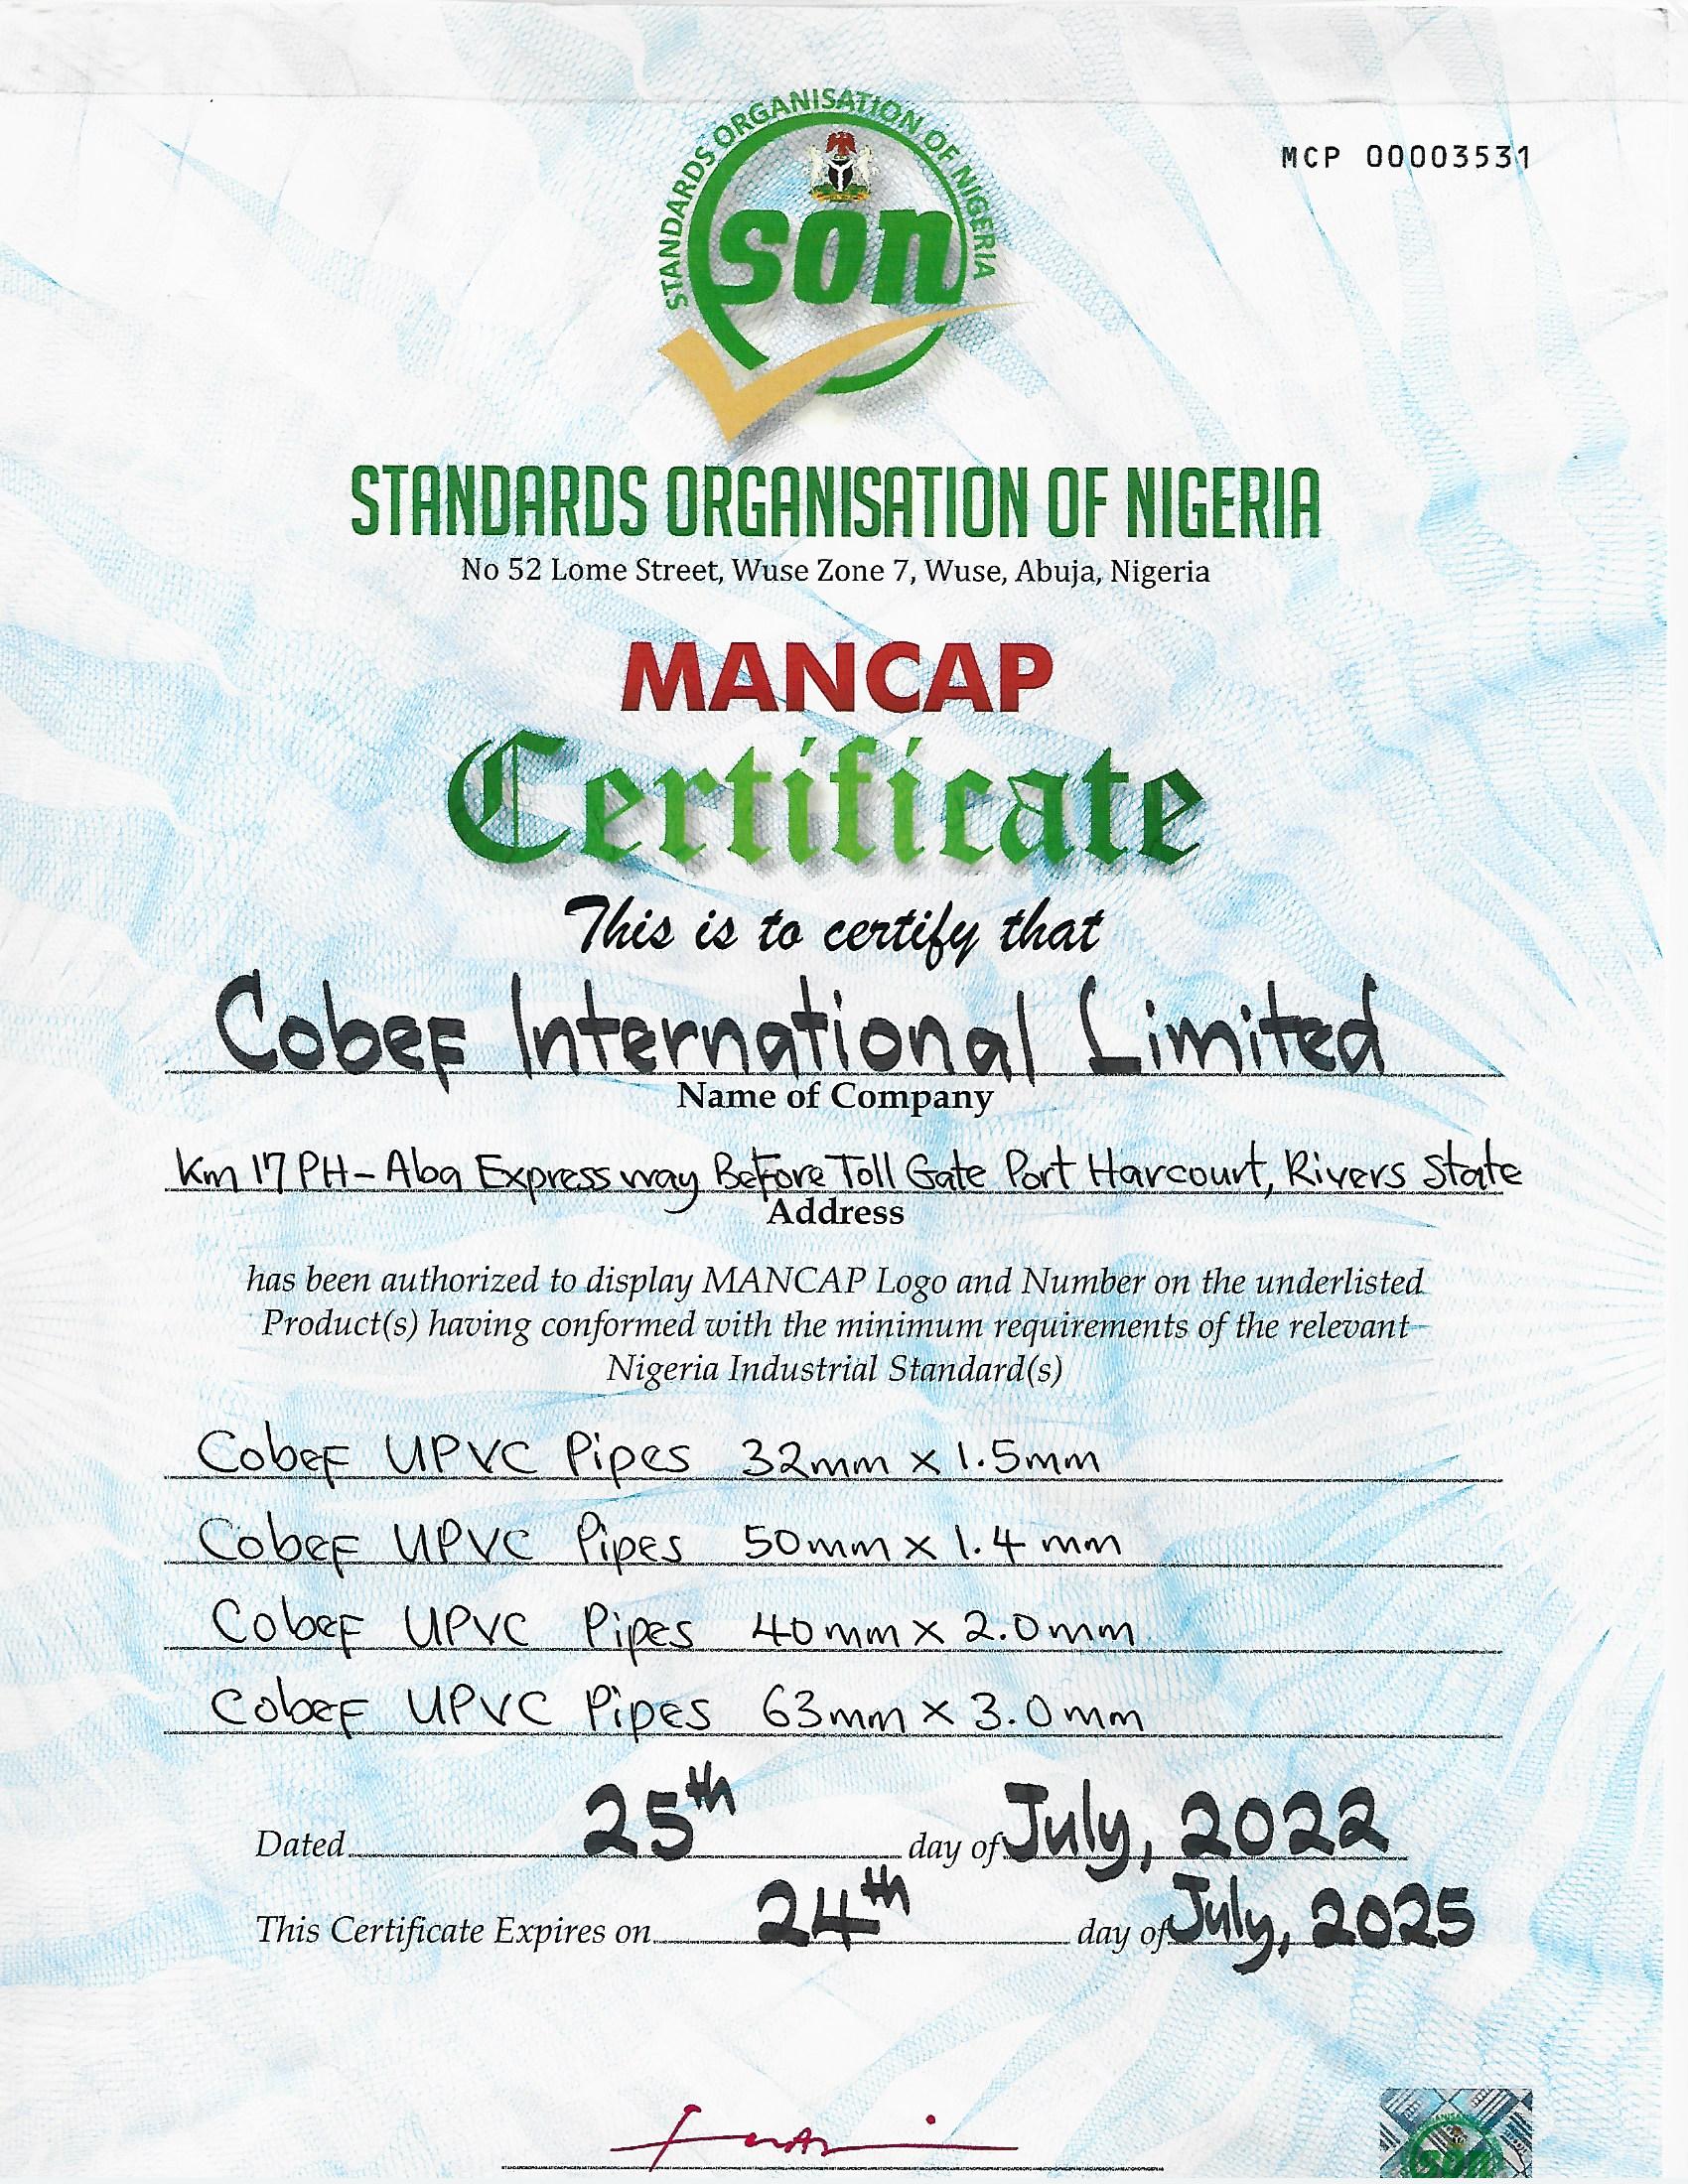 STANDARDS ORGANISATION OF NIGERIA
son
MCP 00003531
STANDARDS ORGANISATION OF NIGERIA
No 52 Lome Street, Wuse Zone 7, Wuse, Abuja, Nigeria
MANCAP
Certificate
This is to certify that
Cobef International Limited
Name of Company
Km 17 PH-Aba Expressway Before Toll Gate Port Harcourt, Rivers State
Address
has been authorized to display MANCAP Logo and Number on the underlisted
Product(s) having conformed with the minimum requirements of the relevant
Nigeria Industrial Standard(s)
Cobef UPVC Pipes 32mm x 1.5mm
Cobef UPVC Pipes 50mm x 1.4mm
Cobef UPVC Pipes 40mm x 2.0mm
Cobef UPVC Pipes 63mm x 3.0mm
Dated 25th day of July, 2022
This Certificate Expires on 24th day of July, 2025
son